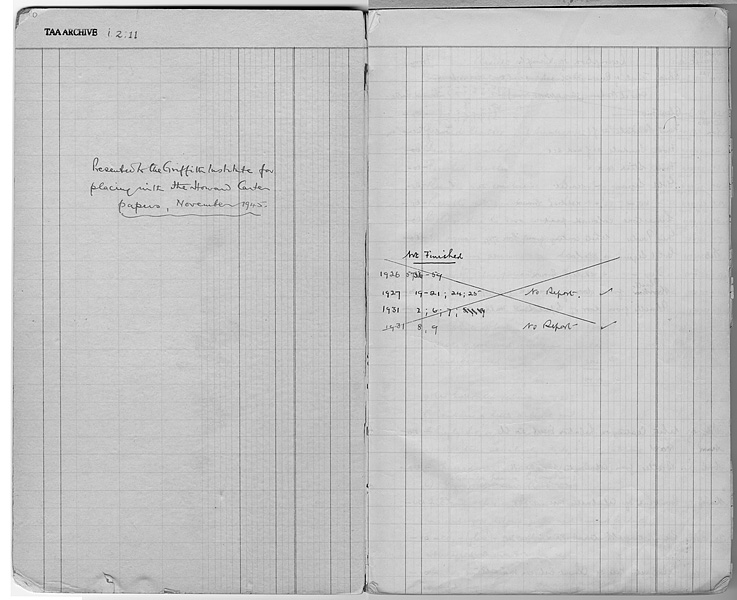 TAA ARCHIVE i 2:11
Presented to the Griffith Institute for
placing with the Howard Carter
papers, November 1945.
Not Finished
1926 54
1927 19-21; 24; 25 No Report. ✓
1931 2; 6; 7;
1931 8, 9 No Report ✓